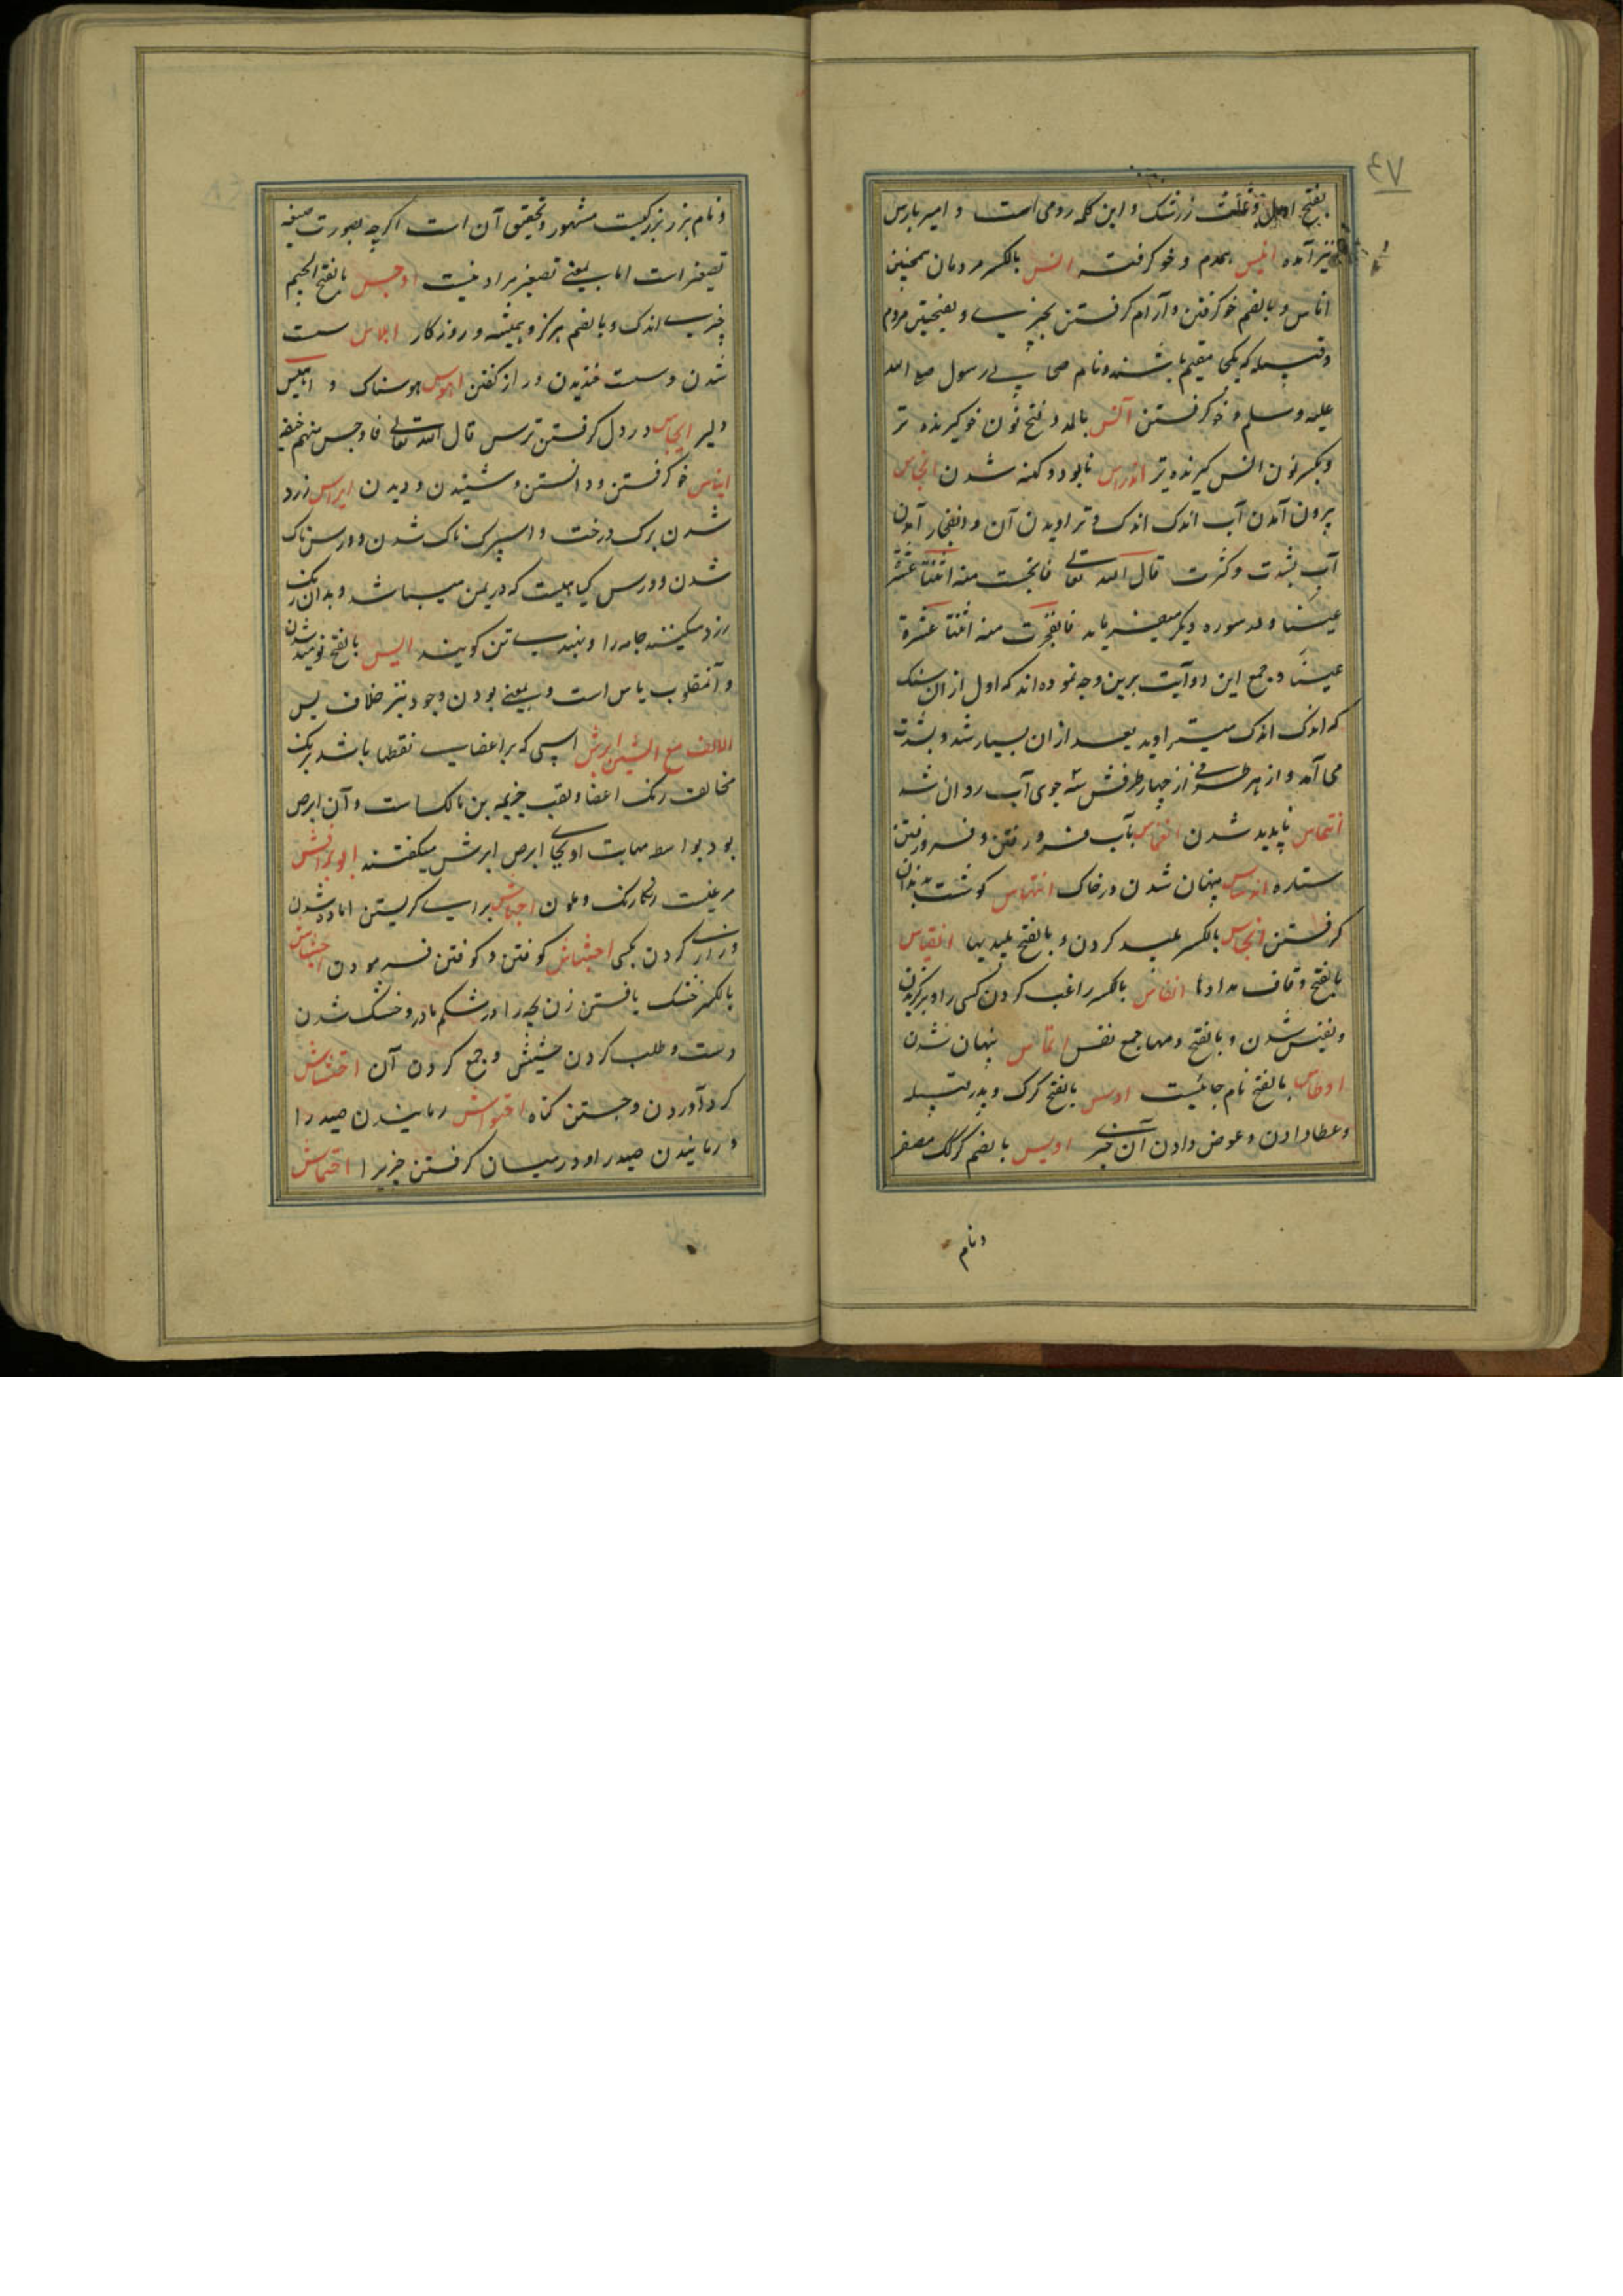 ۴۷
بفتح اول و ثالث زرشک و این کلمه رومی است و امیر بارس
نیز آمده انیس همدم و خو کرفته انس بالکسر مردمان همچنین
اناس و بالضم خو کرفتن و آرام کرفتن بچیزی و بفتحتین مردم
و قبیله که یکجا مقیم باشند و نام صحابی رسول صلی الله
علیه وسلم و خو کرفتن آنس بالمد و فتح نون خو کیرنده تر
و بکسر نون انس کیرنده تر اندراس نابود و کهنه شدن انبجاس
بیرون آمدن آب اندک اندک و تراویدن آن و انفجار آمدن
آب بشدت و کثرت قال الله تعالی فانبجست منه اثنتا عشرة
عینا و در سوره دیکر میفرماید فانفجرت منه اثنتا عشرة
عینا و جمع این دو آیت برین وجه نموده اند که اول از ان سنک
که اندک اندک میتراوید بعد از ان بسیار شد و بشدت
می آمد و از هر طرفی از چهار طرفش سه جوی آب روان شد
انتماس ناپدید شدن انغماس بآب فرو رفتن و فرو رفتن
ستاره اندساس پنهان شدن در خاک انتهاس کوشت بدندان
کرفتن انجاس بالکسر پلید کردن و بالفتح پلیدیها انقاس
بالفتح و قاف مدادها انفاس بالکسر راغب کردن کسی را و بزرک کردن
و نفیس شدن و بالفتح دمها جمع نفس انماس پنهان شدن
اوطاس بالفتح نام جائیست اوس بالفتح کرک و پدر قبیله
و عطا دادن و عوض دادن آن چیزی اویس بالضم کرک مصغر
و نام
و نام بزر بزرکیست مشهور و تحقیق آن است اکرچه بصورت صیغه
تصغیر است اما بمعنی تصغیر مراد نیست اوجس بالفتح الجیم
چیزی اندک و بالضم هرکز و همیشه و روزکار اهلاس سست
شدن و سست خندیدن و راز کفتن اهوس هوسناک و اهیس
دلیر ایجاس در دل کرفتن ترس قال الله تعالی فاوجس منهم خیفه
ایناس خو کرفتن و دانستن و شنیدن و دیدن ایراس زرد
شدن برک درخت و اسپرک ناک شدن و ورس ناک
شدن و ورس کیاهیست که در یمن میباشد و بدان رنک
زرد میکنند جامه را و بهندی تن کویند ایس بالفتح نومید شدن
و آنمقلوب یاس است و بمعنی بودن وجود نیز خلاف لیس
الالف مع الشین ابرش اسپی که بر اعضایش نقطها باشد برنک
مخالف رنک اعضا و لقب جزیمه بن مالک است و آن ابرص
بود بواسطه مهابت او بجای ابرص ابرش میکفتند ابو براقش
مرغیست رنکارنک و ملون اجهاش برای کریستن آماده شدن
و زاری کردن بکسی اجتشاش کوفتن و کوفتن فرمودن احشاش
بالکسر خشک یافتن زن بچه را در شکم مادر و خشک شدن
دست و طلب کردن حشیش و جمع کردن آن احتشاش
کرد آوردن و جستن کیاه احتواش رمانیدن صید را
و رمانیدن صید را و در میان کرفتن چیزیرا احتماش